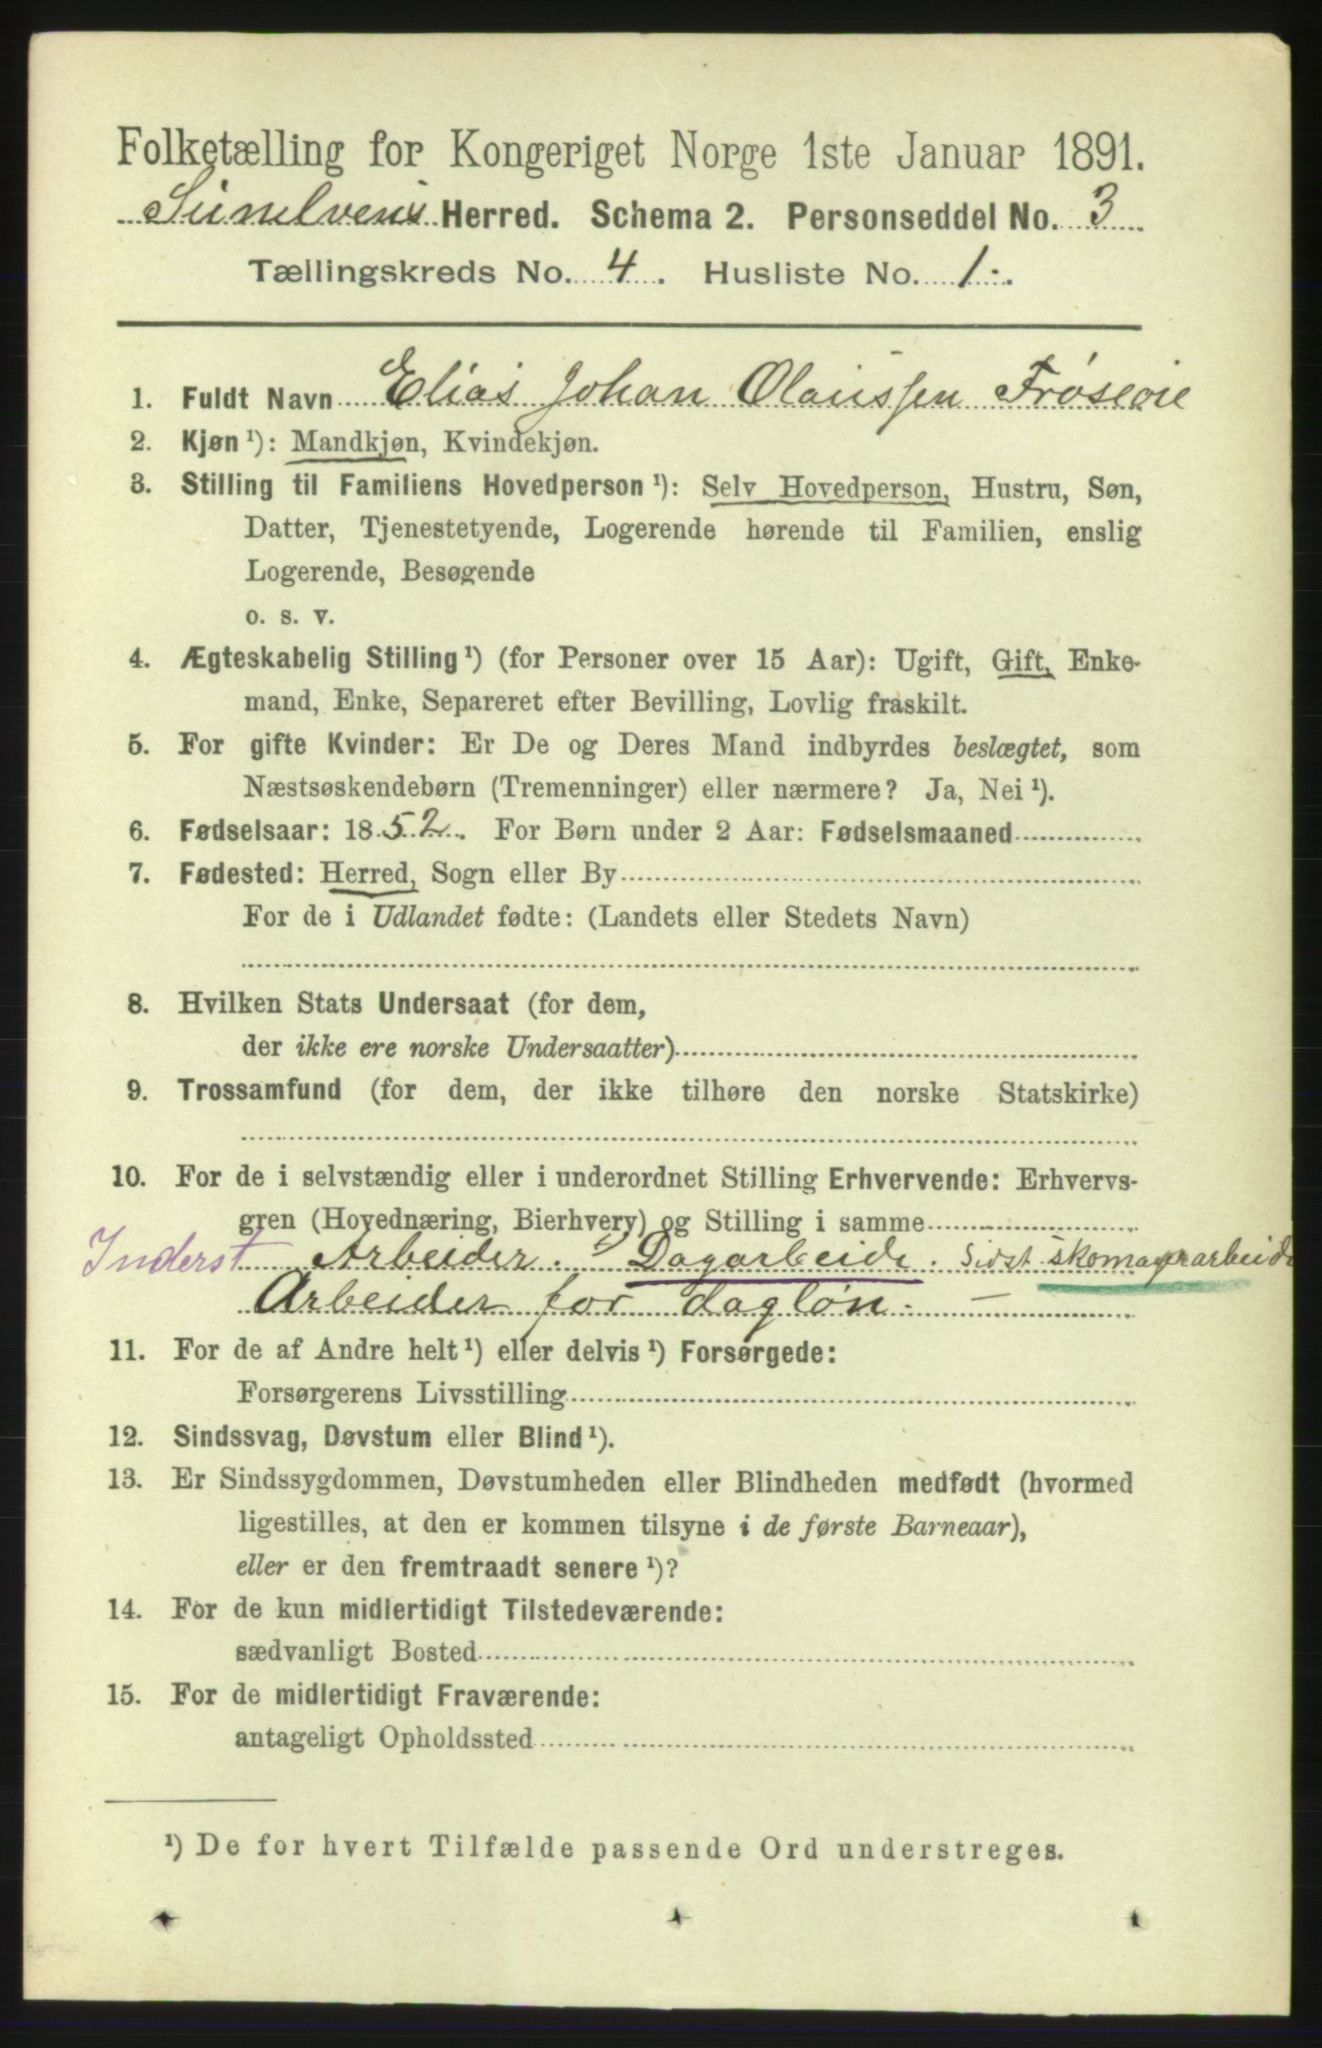 Folketælling for Kongeriget Norge 1ste Januar 1891.
Sunelvens Herred. Schema 2. Personseddel No. 3
Tællingskreds No. 4. Husliste No. 1.
1. Fuldt Navn Elias Johan Olaussen Frøseøie
2. Kjøn ¹): Mandkjøn, Kvindekjøn.
3. Stilling til Familiens Hovedperson ¹): Selv Hovedperson, Hustru, Søn,
Datter, Tjenestetyende, Logerende hørende til Familien, enslig
Logerende, Besøgende
o. s. v.
4. Ægteskabelig Stilling ¹) (for Personer over 15 Aar): Ugift, Gift, Enke-
mand, Enke, Separeret efter Bevilling, Lovlig fraskilt.
5. For gifte Kvinder: Er De og Deres Mand indbyrdes beslægtet, som
Næstsøskendebørn (Tremenninger) eller nærmere? Ja, Nei ¹).
6. Fødselsaar: 1852. For Børn under 2 Aar: Fødselsmaaned
7. Fødested: Herred, Sogn eller By
For de i Udlandet fødte: (Landets eller Stedets Navn)
8. Hvilken Stats Undersaat (for dem,
der ikke ere norske Undersaatter)
9. Trossamfund (for dem, der ikke tilhøre den norske Statskirke)
10. For de i selvstændig eller i underordnet Stilling Erhvervende: Erhvervs-
gren (Hovednæring, Bierhverv) og Stilling i samme
Inderst Arbeider. i Dagarbeide. Sidst skomagerarbeide
Arbeider for dagløn. —
11. For de af Andre helt ¹) eller delvis ¹) Forsørgede:
Forsørgerens Livsstilling
12. Sindssvag, Døvstum eller Blind ¹).
13. Er Sindssygdommen, Døvstumheden eller Blindheden medfødt (hvormed
ligestilles, at den er kommen tilsyne i de første Barneaar),
eller er den fremtraadt senere ¹)?
14. For de kun midlertidigt Tilstedeværende:
sædvanligt Bosted
15. For de midlertidigt Fraværende:
antageligt Opholdssted
¹) De for hvert Tilfælde passende Ord understreges.